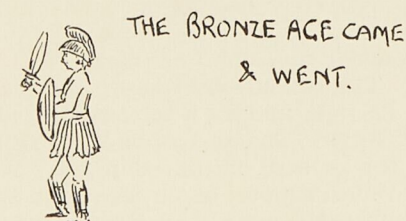 THE BRONZE AGE CAME
& WENT.